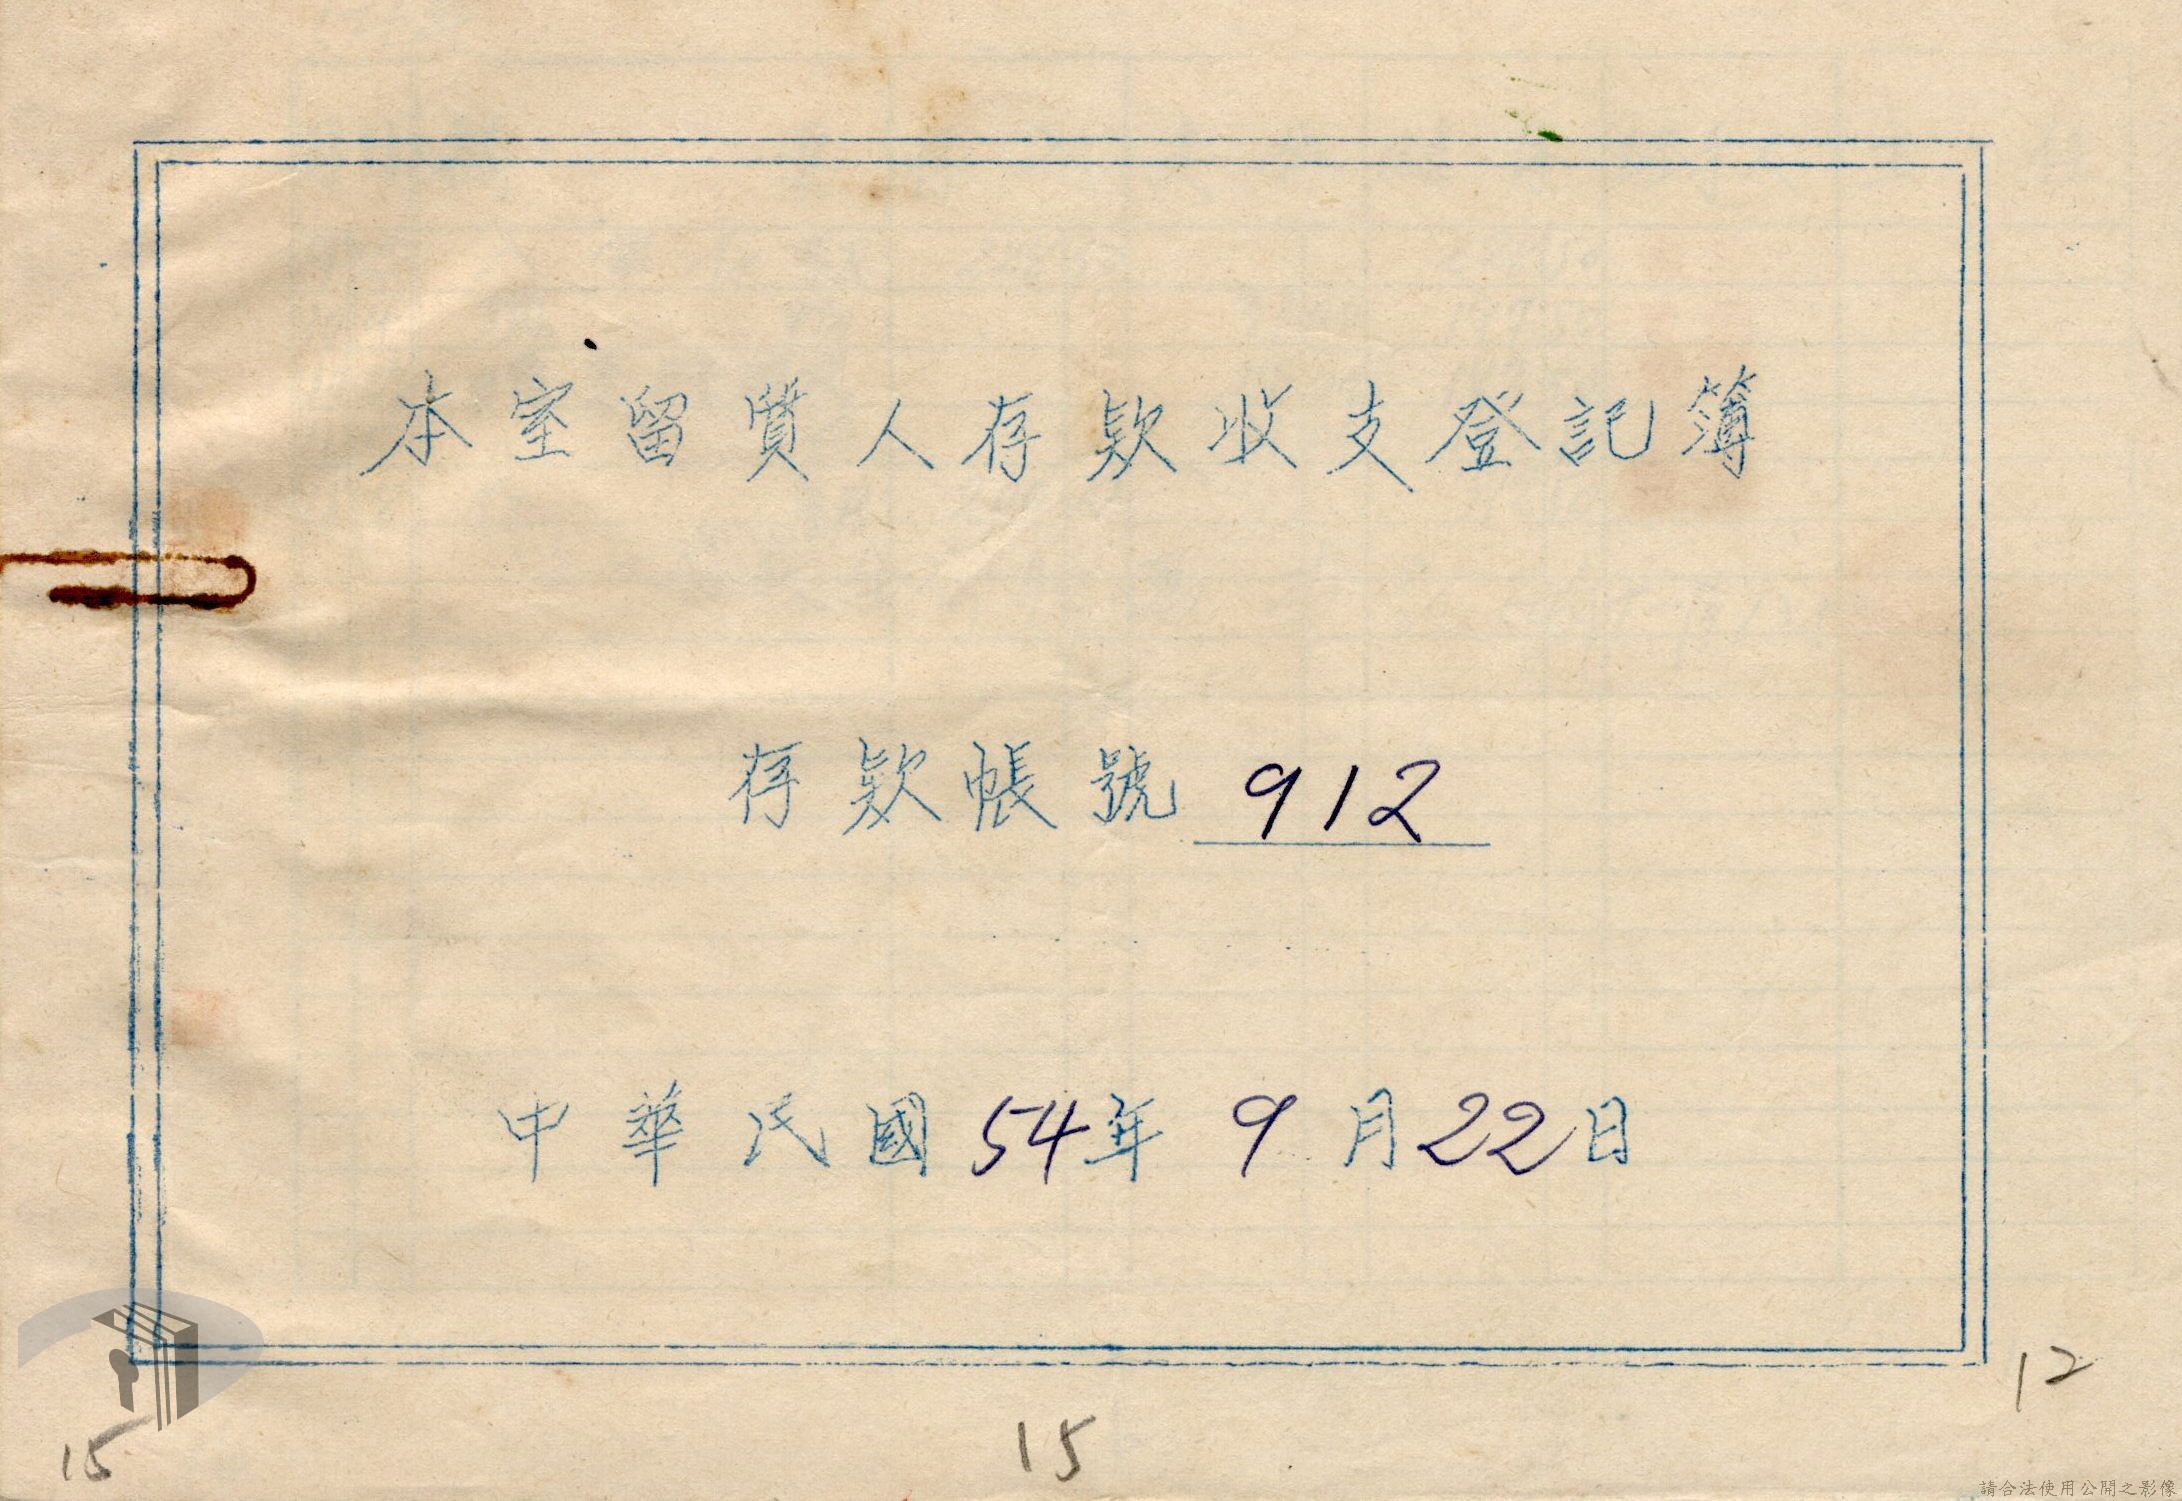 本室留質人存款收支登記簿
存款帳號 912
中華民國54年9月22日
12
15
15
請合法使用公開之影像